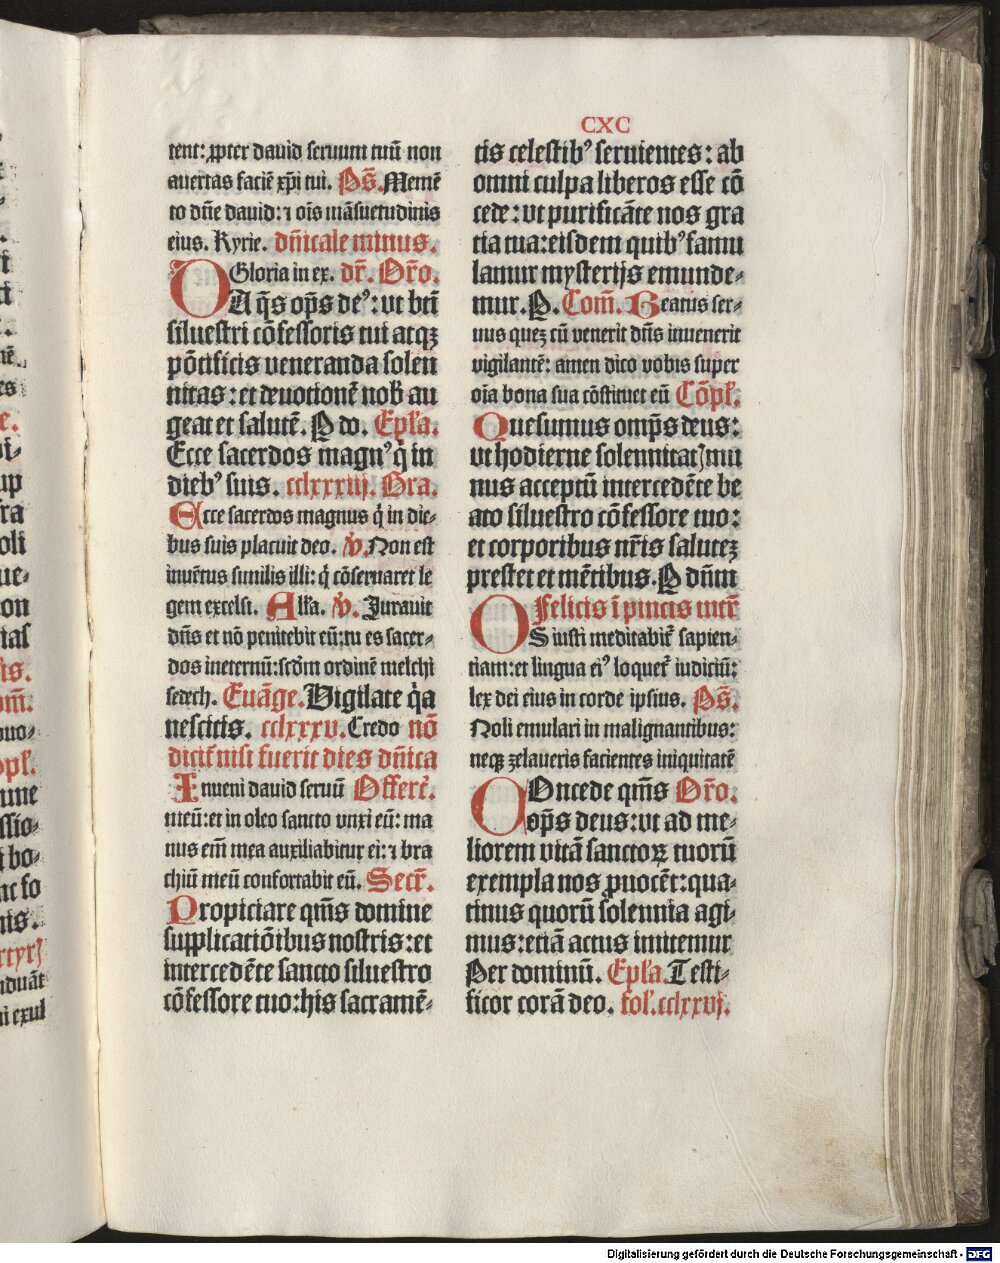 CXC
tent: ꝓpter dauid seruum tuū non
auertas faciē xp̄i tui. Ps̄. Memē
to dn̄e dauid: ⁊ oīs māsuetudinis
eius. Kyrie. dn̄icale minus.
Gloria in ex. dr̄. Or̄o.
DA q̄s op̄s de⁹: vt bt̄i
siluestri cōfessoris tui atqꝫ
pōtificis veneranda solen
nitas: et deuotionē nob̄ au
geat et salutē. P do. Ep̄la.
Ecce sacerdos magn⁹ q̇ in
dieb⁹ suis. cclxxxiij. Gra.
Ecce sacerdos magnus q̇ in die-
bus suis placuit deo. v̇. Non est
inuētus similis illi: q̇ cōseruaret le
gem excelsi. Alľa. v̇. Jurauit
dn̄s et nō penitebit eū: tu es sacer-
dos ineternū: scd̄m ordinē melchi
sedech. Euāge. Uigilate q̇a
nescitis. cclxxxv. Credo nō
dicit̄ nisi fuerit dies dn̄ica
Inueni dauid seruū Offert̄.
meū: et in oleo sancto vnxi eū: ma
nus em̄ mea auxiliabitur ei: ⁊ bra
chiū meū confortabit eū. Secr̄.
Propiciare qm̄s domine
supplicatiōibus nostris: et
intercedēte sancto siluestro
cōfessore tuo: his sacramē-
tis celestib⁹ seruientes: ab
omni culpa liberos esse cō
cede: vt purificāte nos gra
tia tua: eisdem quib⁹ famu
lamur mysterijs emunde-
mur. P. Com̄. Beatus ser-
uus quez cū venerit dn̄s inuenerit
vigilantē: amen dico vobis super
oīa bona sua cōstituet eū Cōpľ.
Quesumus omp̄s deus:
vt hodierne solennitatꝭ mu
nus acceptū intercedēte be
ato siluestro cōfessore tuo:
et corporibus nr̄is salutez
prestet et mētibus. P dn̄m
Felicis ī pincis mer̄
OS iusti meditabit̄ sapien-
tiam: et lingua ei⁹ loquet̄ iudiciū:
lex dei eius in corde ipsius. Ps̄.
Noli emulari in malignantibus:
neqꝫ zelaueris facientes iniquitatē
COncede qm̄s Or̄o.
op̄s deus: vt ad me-
liorem vitā sanctoꝝ tuorū
exempla nos ꝓuocēt: qua-
tinus quorū solennia agi-
mus: etiā actus imitemur
Per dominū. Ep̄la. Testi-
ficor corā deo. foľ. cclxxvj.
Digitalisierung gefördert durch die Deutsche Forschungsgemeinschaft - DFG